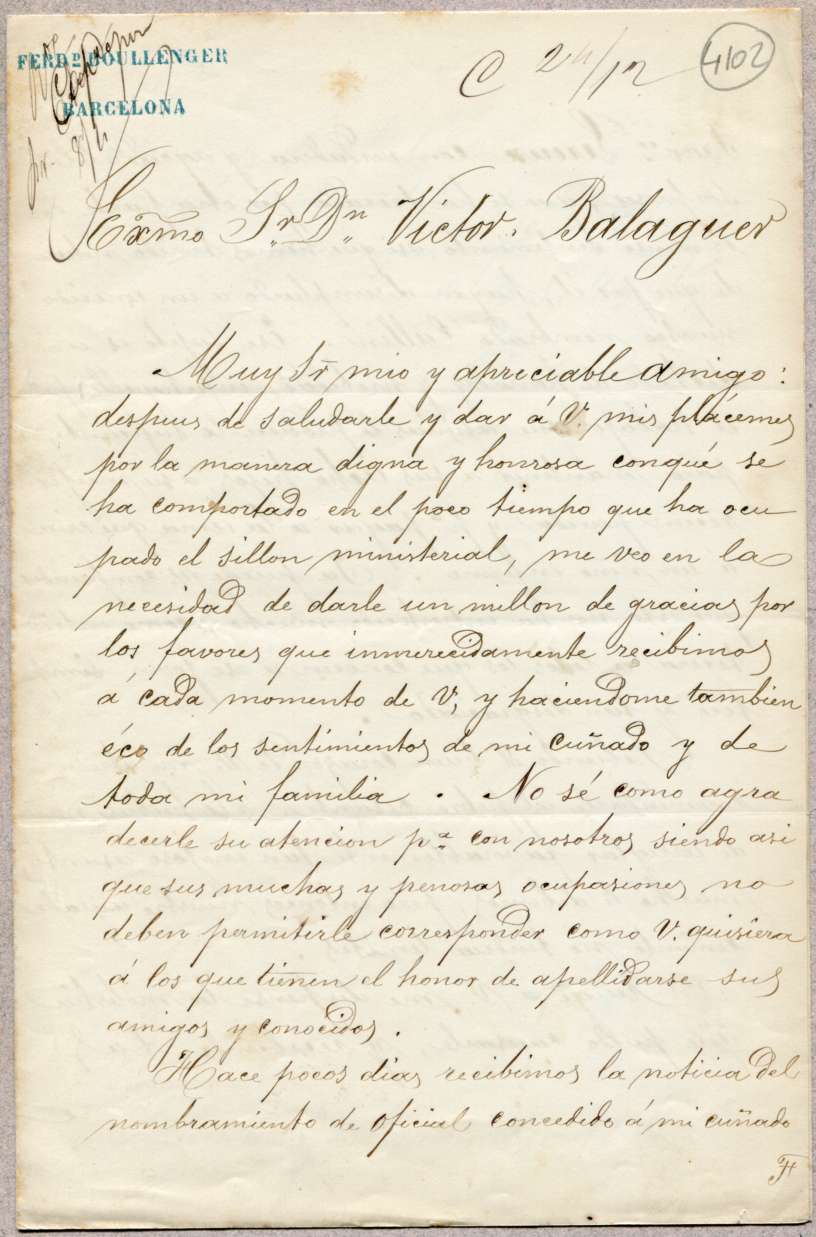 FERDº BOULLENGER
BARCELONA
C 24/12
4102
Exmo Sr. Dn. Victor. Balaguer
Muy Sr mio y apreciable amigo:
despues de saludarle y dar á V. mis plácemes
por la manera digna y honrosa conqué se
ha comportado en el poco tiempo que ha ocu
pado el sillon ministerial, me veo en la
necesidad de darle un millon de gracias por
los favores que inmerecidamente recibimos
á cada momento de V, y haciendome tambien
éco de los sentimientos de mi cuñado y de
toda mi familia. No sé como agra
decerle su atencion pª con nosotros siendo asi
que sus muchas y penosas ocupasiones no
deben permitirle corresponder como V. quisiera
á los que tienen el honor de apellidarse sus
amigos y conocidos.
Hace pocos dias recibimos la noticia del
nombramiento de oficial concedido á mi cuñado
F